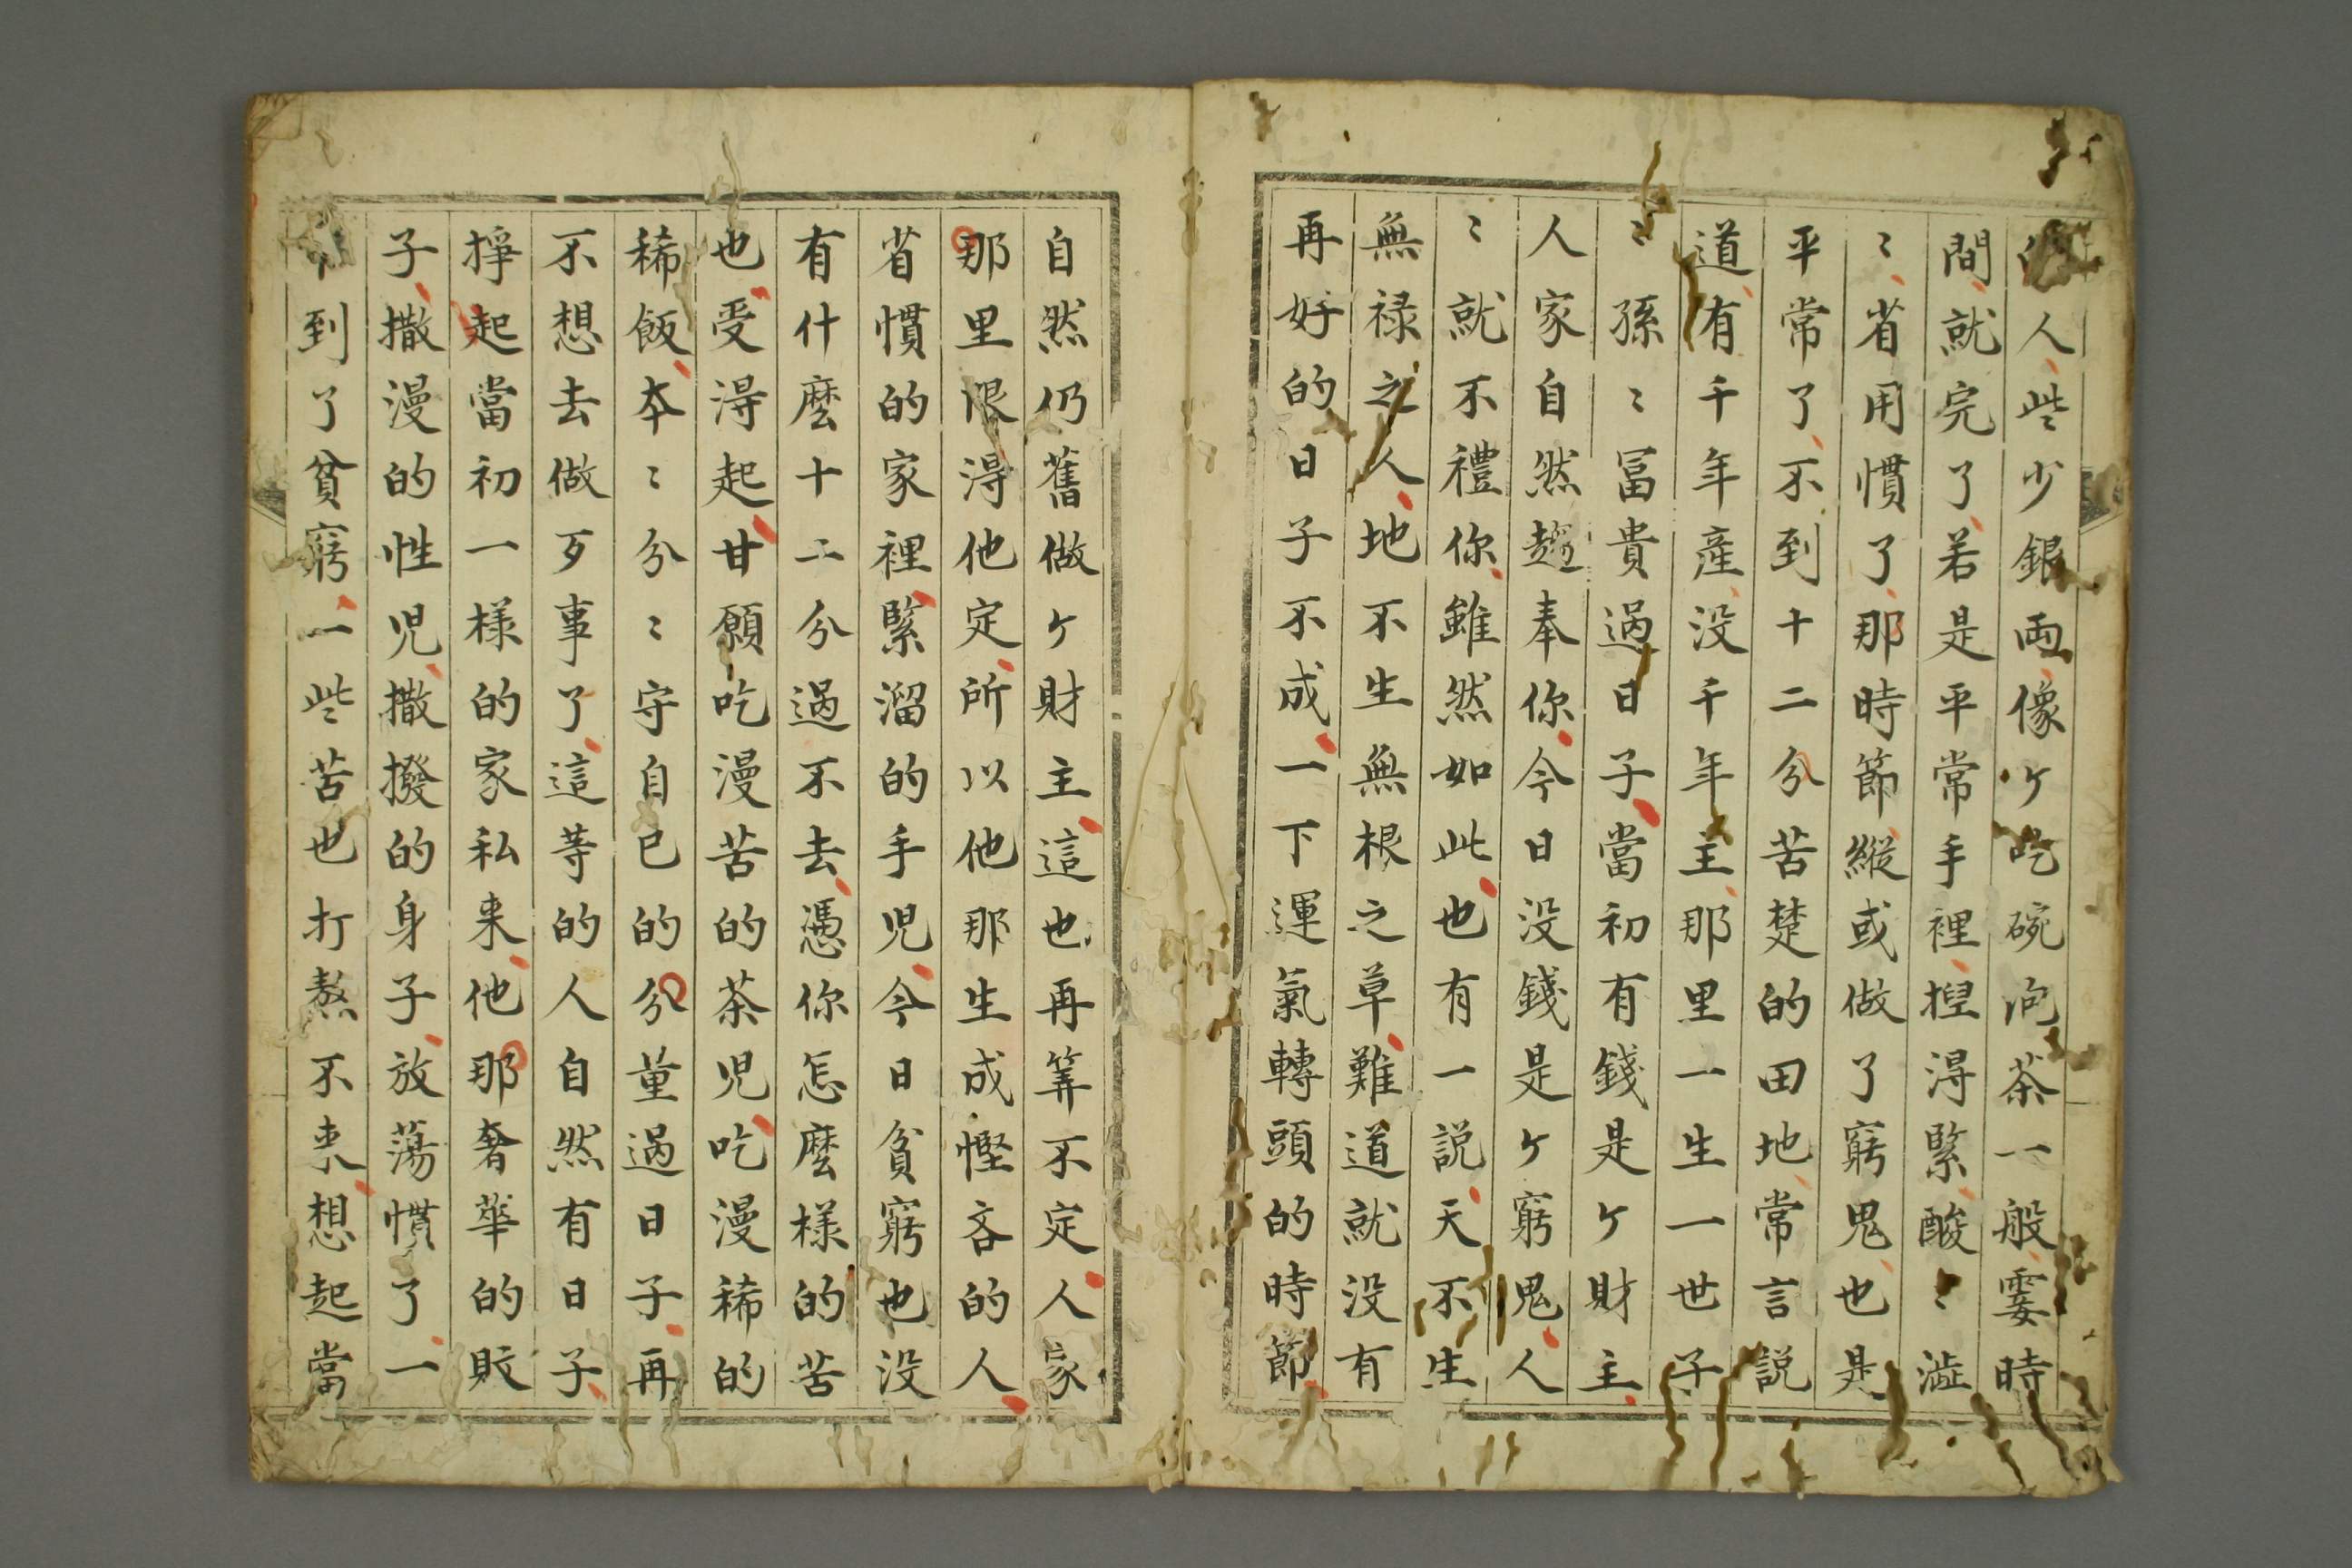 人些少銀両像ケ吃碗泡茶一般霎時
間就完了若是平常手裡揑淂緊酸〻澁
〻省用慣了那時節縱或做了窮鬼也是
平常了不到十二分苦楚的田地常言説
道有千年産没千年主那里一生一世子
〻孫〻冨貴過日子當初有錢是ケ財主
人家自然趨奉你今日没錢是ケ窮鬼人
〻就不禮你雖然如此也有一説天不生
無禄之人地不生無根之草難道就没有
再好的日子不成一下運氣轉頭的時節
自然仍舊做ケ財主這也再筭不定人家
那里限淂他定所以他那生成慳吝的人
省慣的家裡緊溜的手児今日貧窮也没
有什麽十二分過不去憑你怎麽樣的苦
也受淂起甘願吃漫苦的茶児吃漫稀的
稀飯本〻分〻守自已的分量過日子再
不想去做歹事了這等的人自然有日子
掙起當初一樣的家私来他那奢華的敗
子撒漫的性児撒撥的身子放蕩慣了一
到了貧窮一些苦也打熬不来想起當